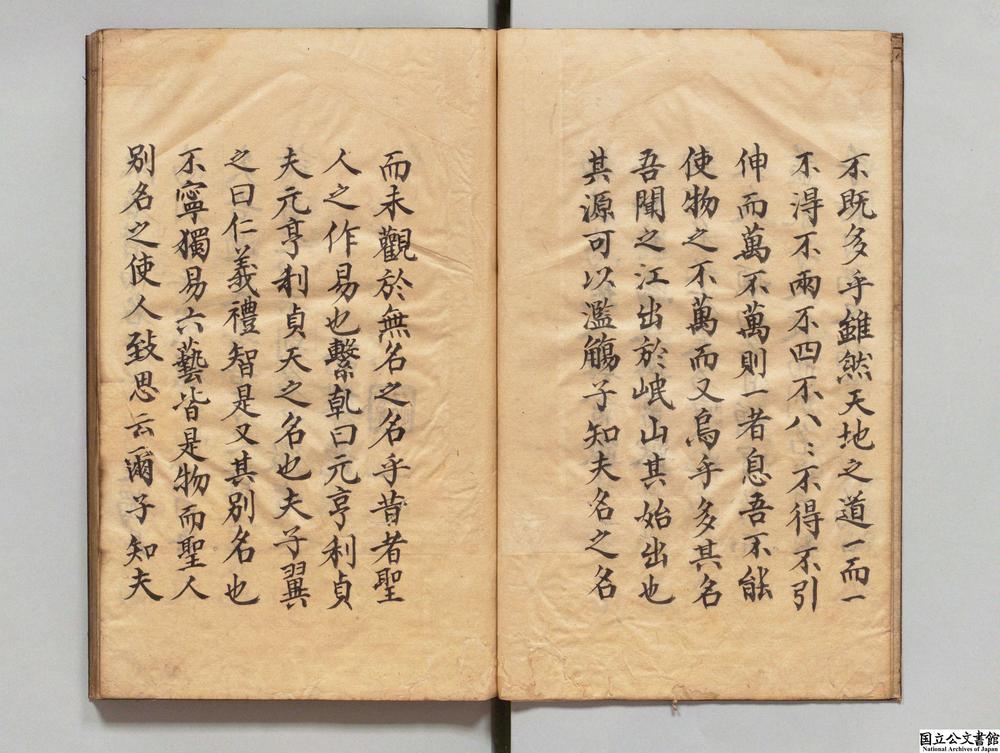 不既多乎雖然天地之道一而一
不得不兩不四不八〻不得不引
伸而萬不萬則一者息吾不能
使物之不萬而又烏乎多其名
吾聞之江出於岷山其始出也
其源可以濫觴子知夫名之名
而未觀於無名之名乎昔者聖
人之作易也繫乹曰元亨利貞
夫元亨利貞天之名也夫子翼
之曰仁義禮智是又其別名也
不寧獨易六藝皆是物而聖人
別名之使人致思云爾子知夫
国立公文書館
National Archives of Japan